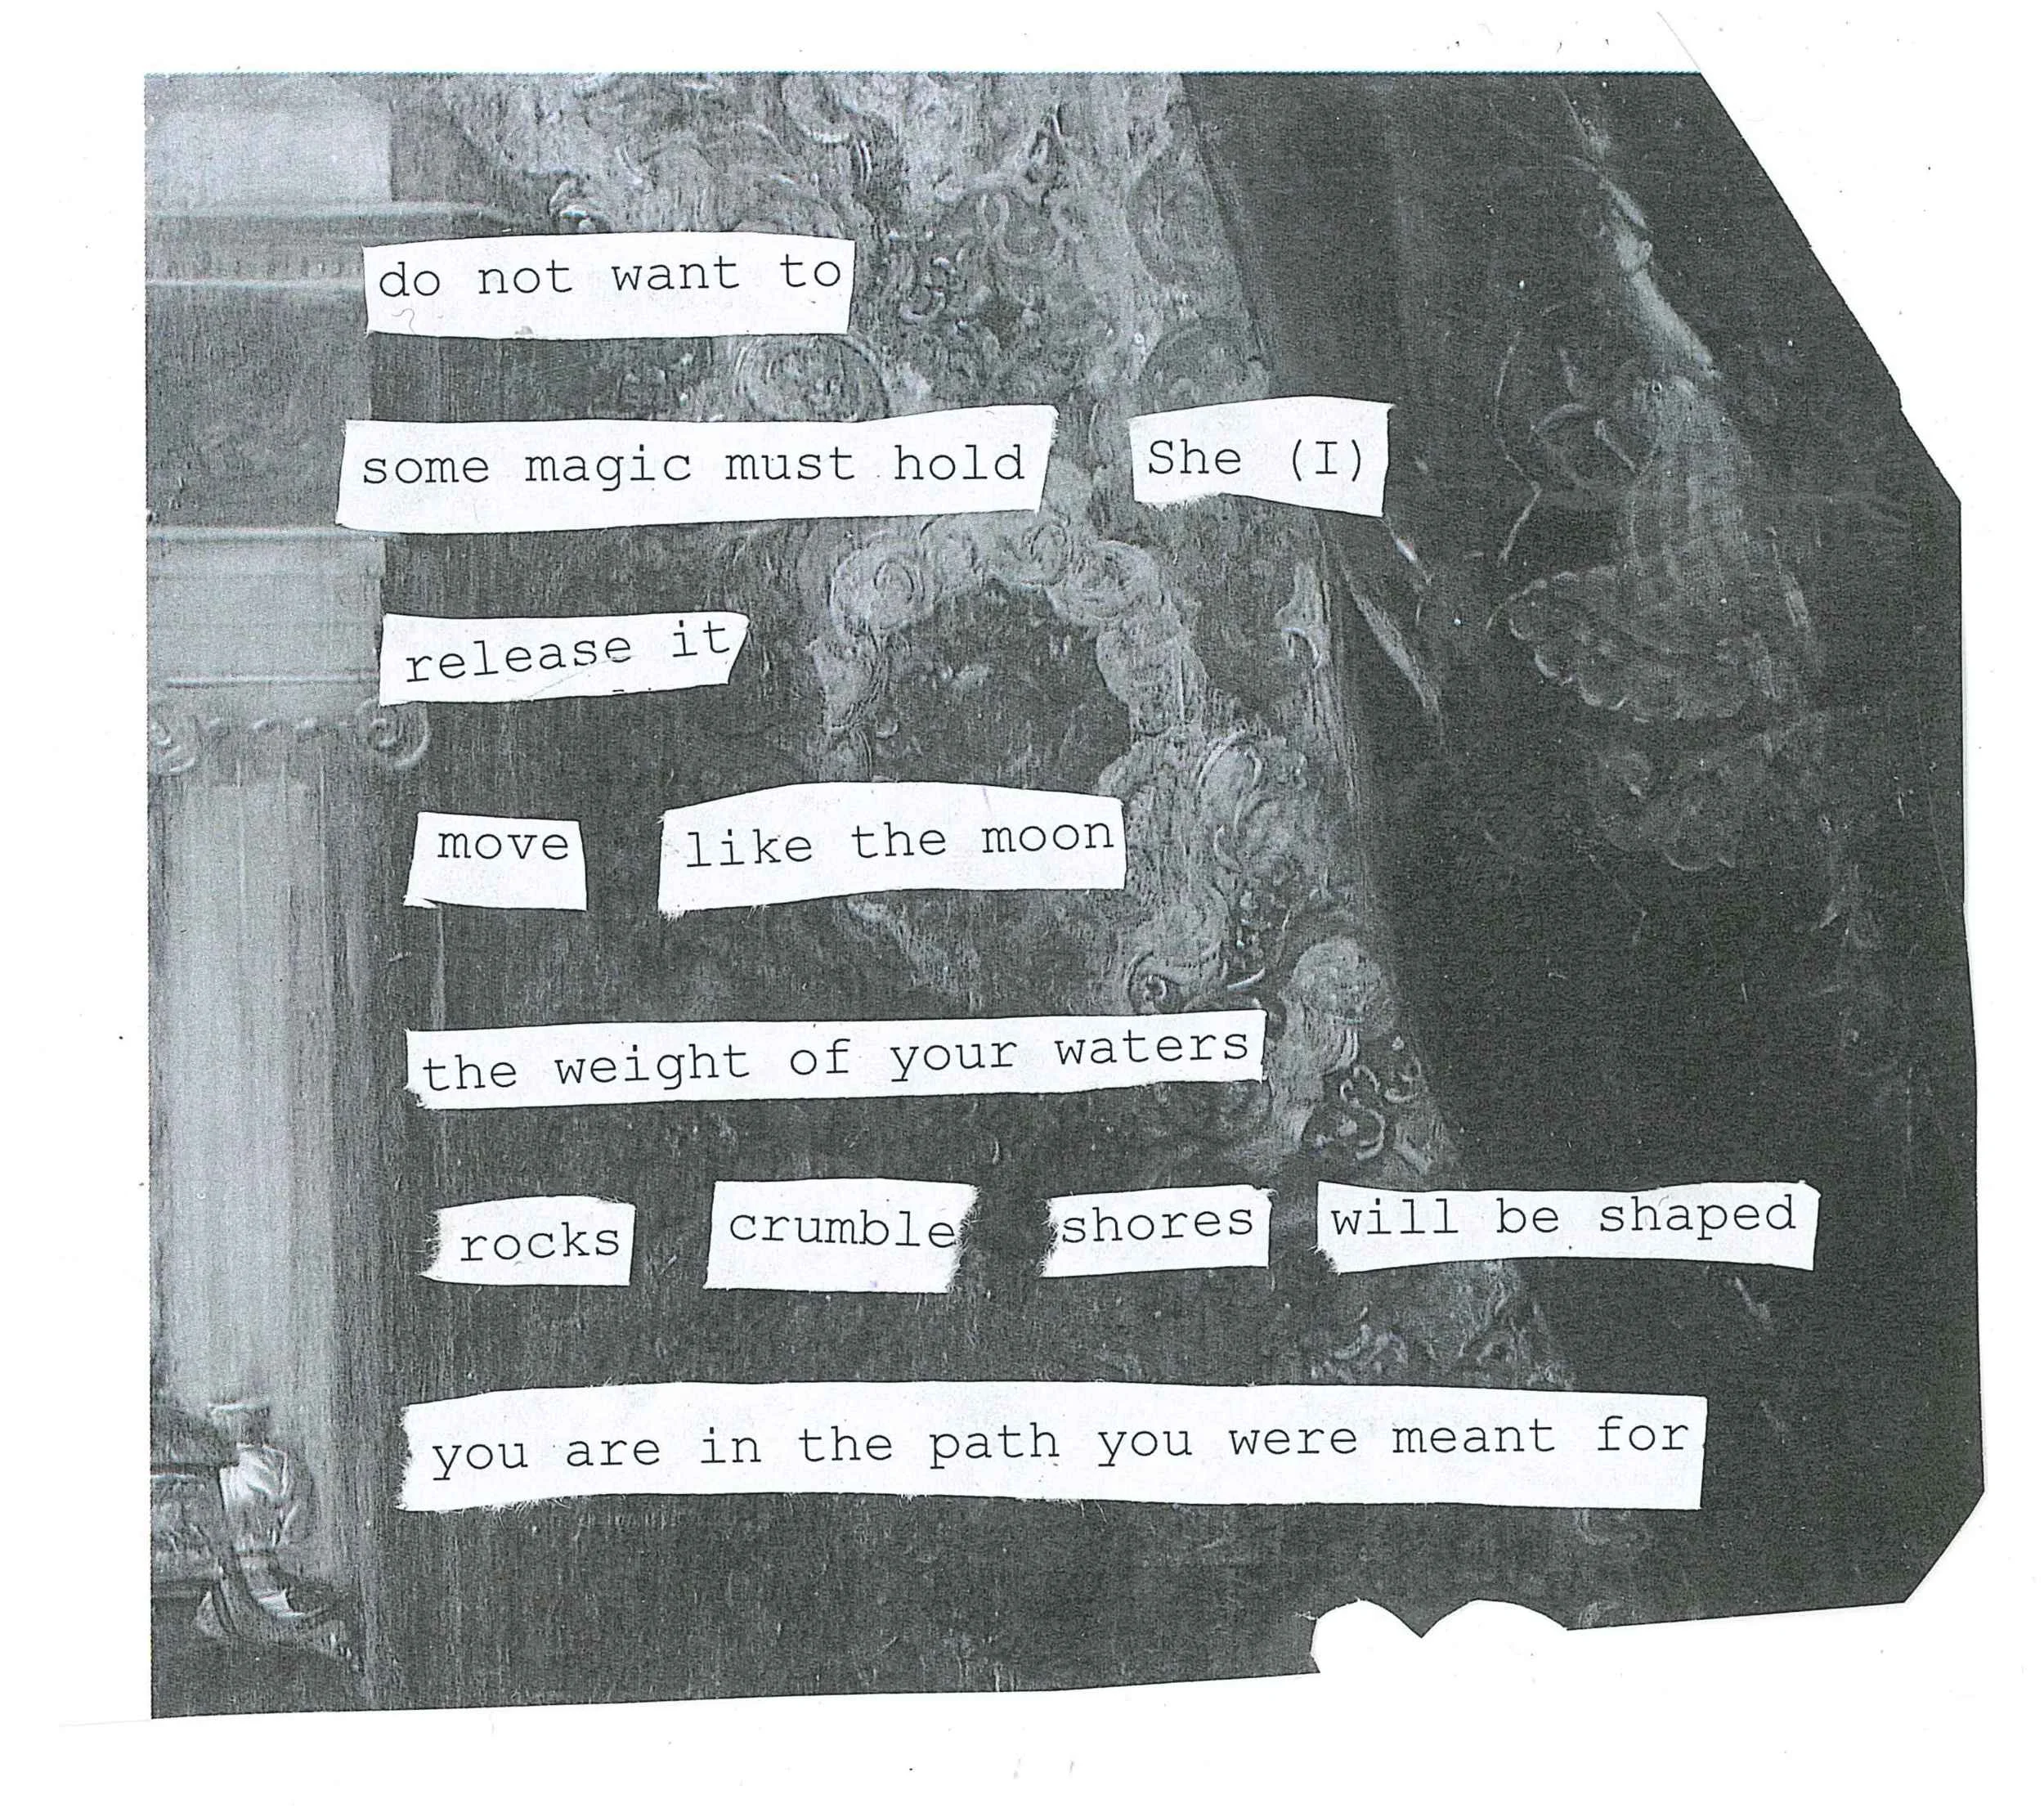 do not want to
some magic must hold She (I)
release it
move like the moon
the weight of your waters
rocks crumble shores will be shaped
you are in the path you were meant for